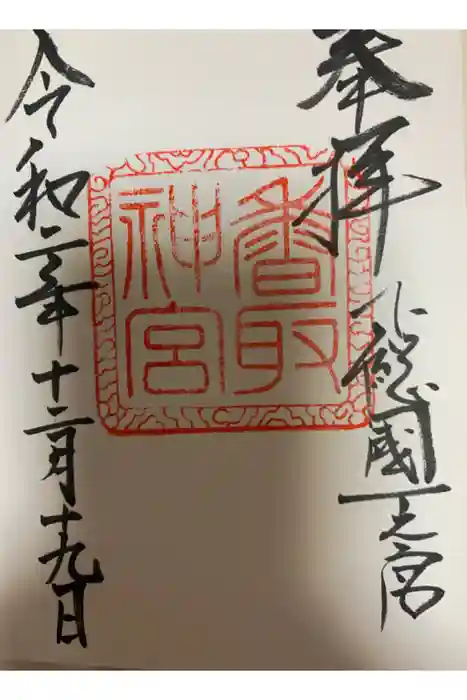 奉拝
下総國一之宮
香取
神宮
令和二年十二月十九日